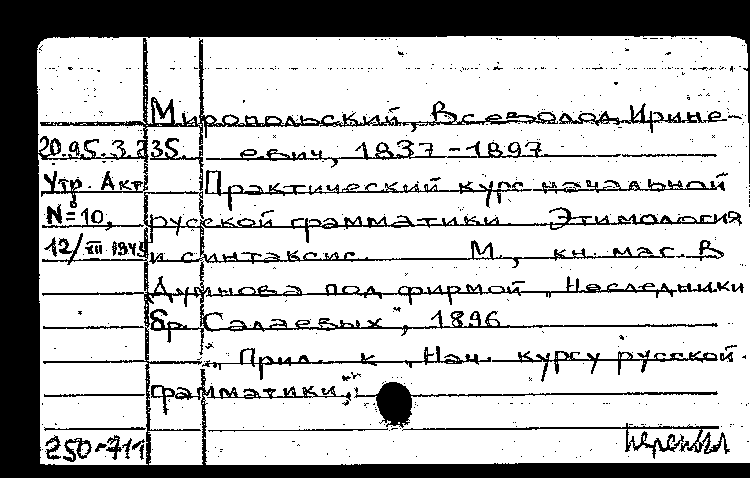 Миропольский, Всеволод Ирине-
20.95.3.235. евич, 1837-1897.
Утр. Акт Практический курс начальной
№10, русской грамматики. Этимология
12/XII 1949 и синтаксис. М., кн. маг. В
Думнова под фирмой „Наследники
бр. Салаевых", 1896.
„Прил. к „Нач. курсу русской
грамматики".
250-711